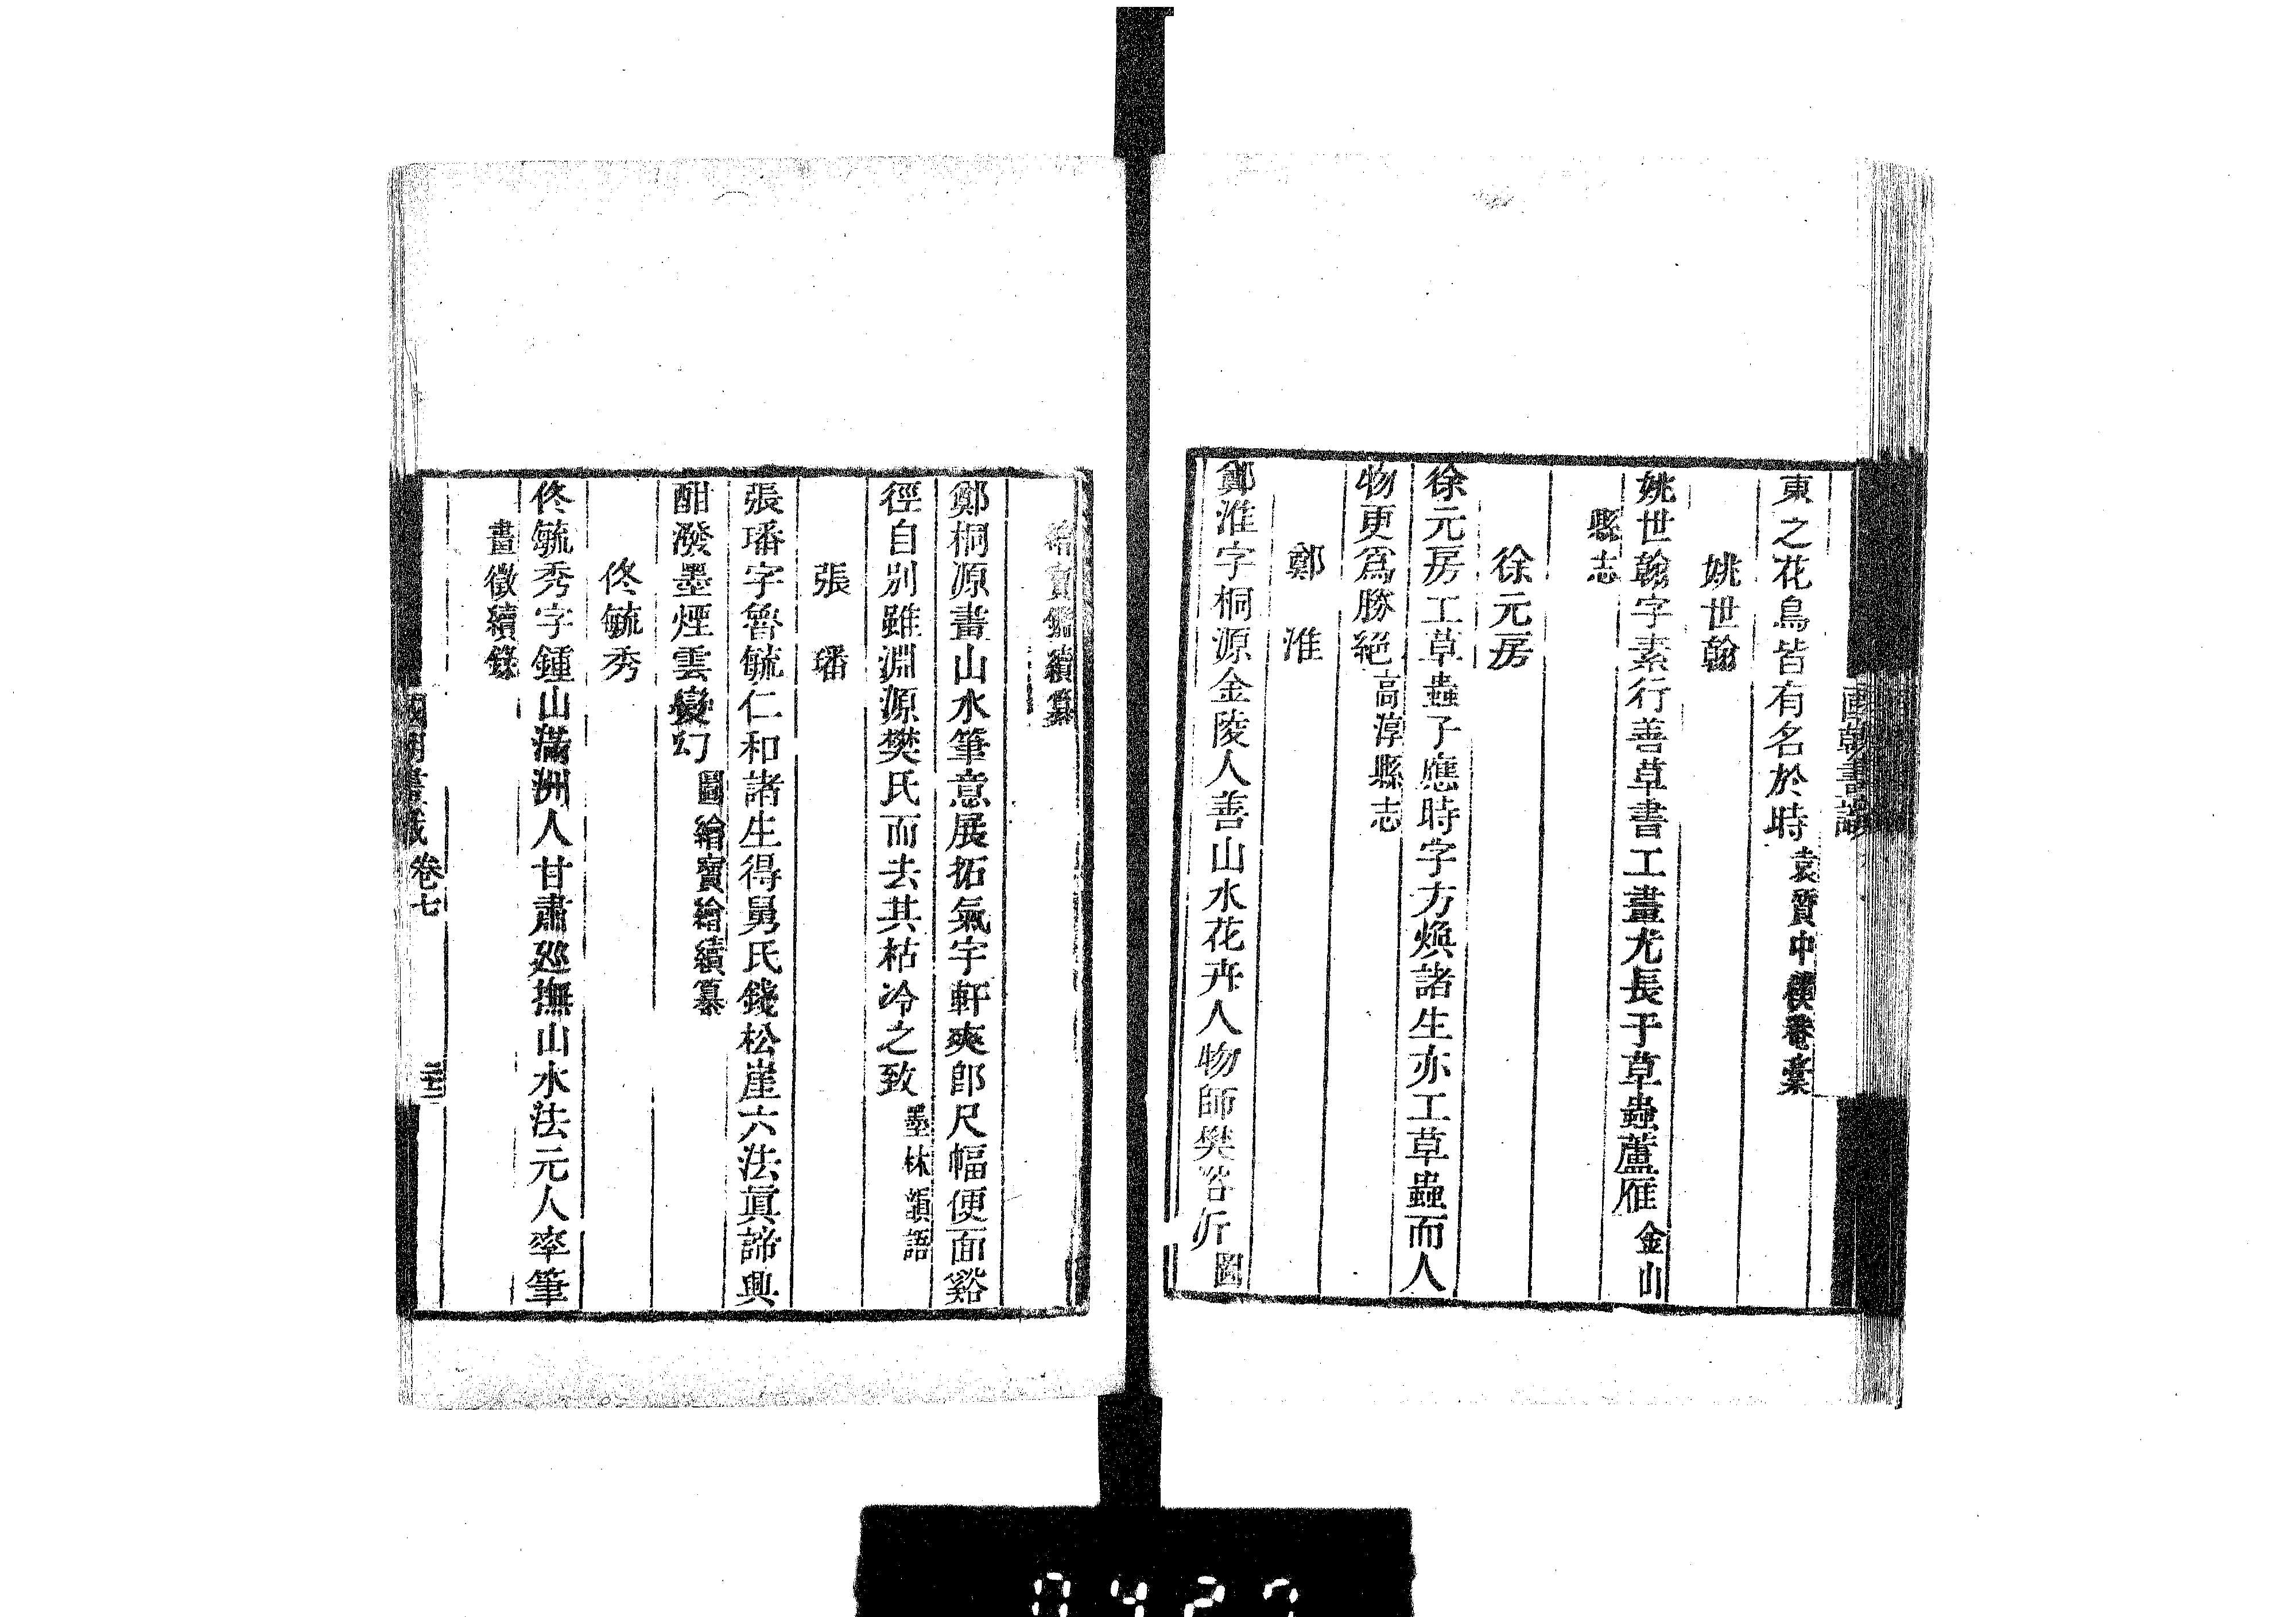 東之花鳥皆有名於時袁質中補菴彙
姚世翰
姚世翰字素行善草書工畫尤長于草蟲蘆雁金山
縣志
徐元房
徐元房工草蟲子應時字方煥諸生亦工草蟲而人
物更爲勝絕高淳縣志
鄭淮
鄭淮字桐源金陵人善山水花卉人物師樊圻圖
繪寶鑑續纂
鄭桐源畫山水筆意展拓氣宇軒爽卽尺幅便面谿
徑自別雖淵源樊氏而去其枯冷之致墨林韻語
張璠
張璠字魯毓仁和諸生得舅氏錢松崖六法眞諦興
酣潑墨煙雲變幻圖繪寶繪續纂
佟毓秀
佟毓秀字鍾山滿洲人甘肅廵撫山水法元人率筆
畫徵續錄
國朝畫識卷七
0427